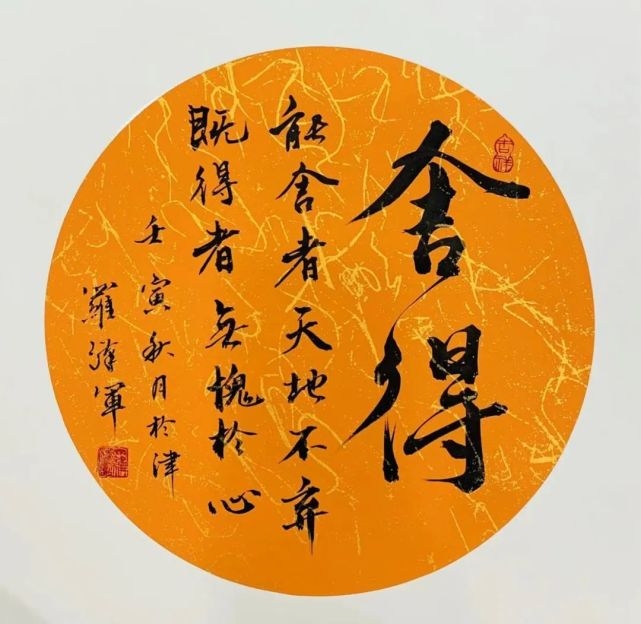 舍得
能舍者天地不弃
既得者無愧於心
壬寅秋月於津
羅軍
吉祥